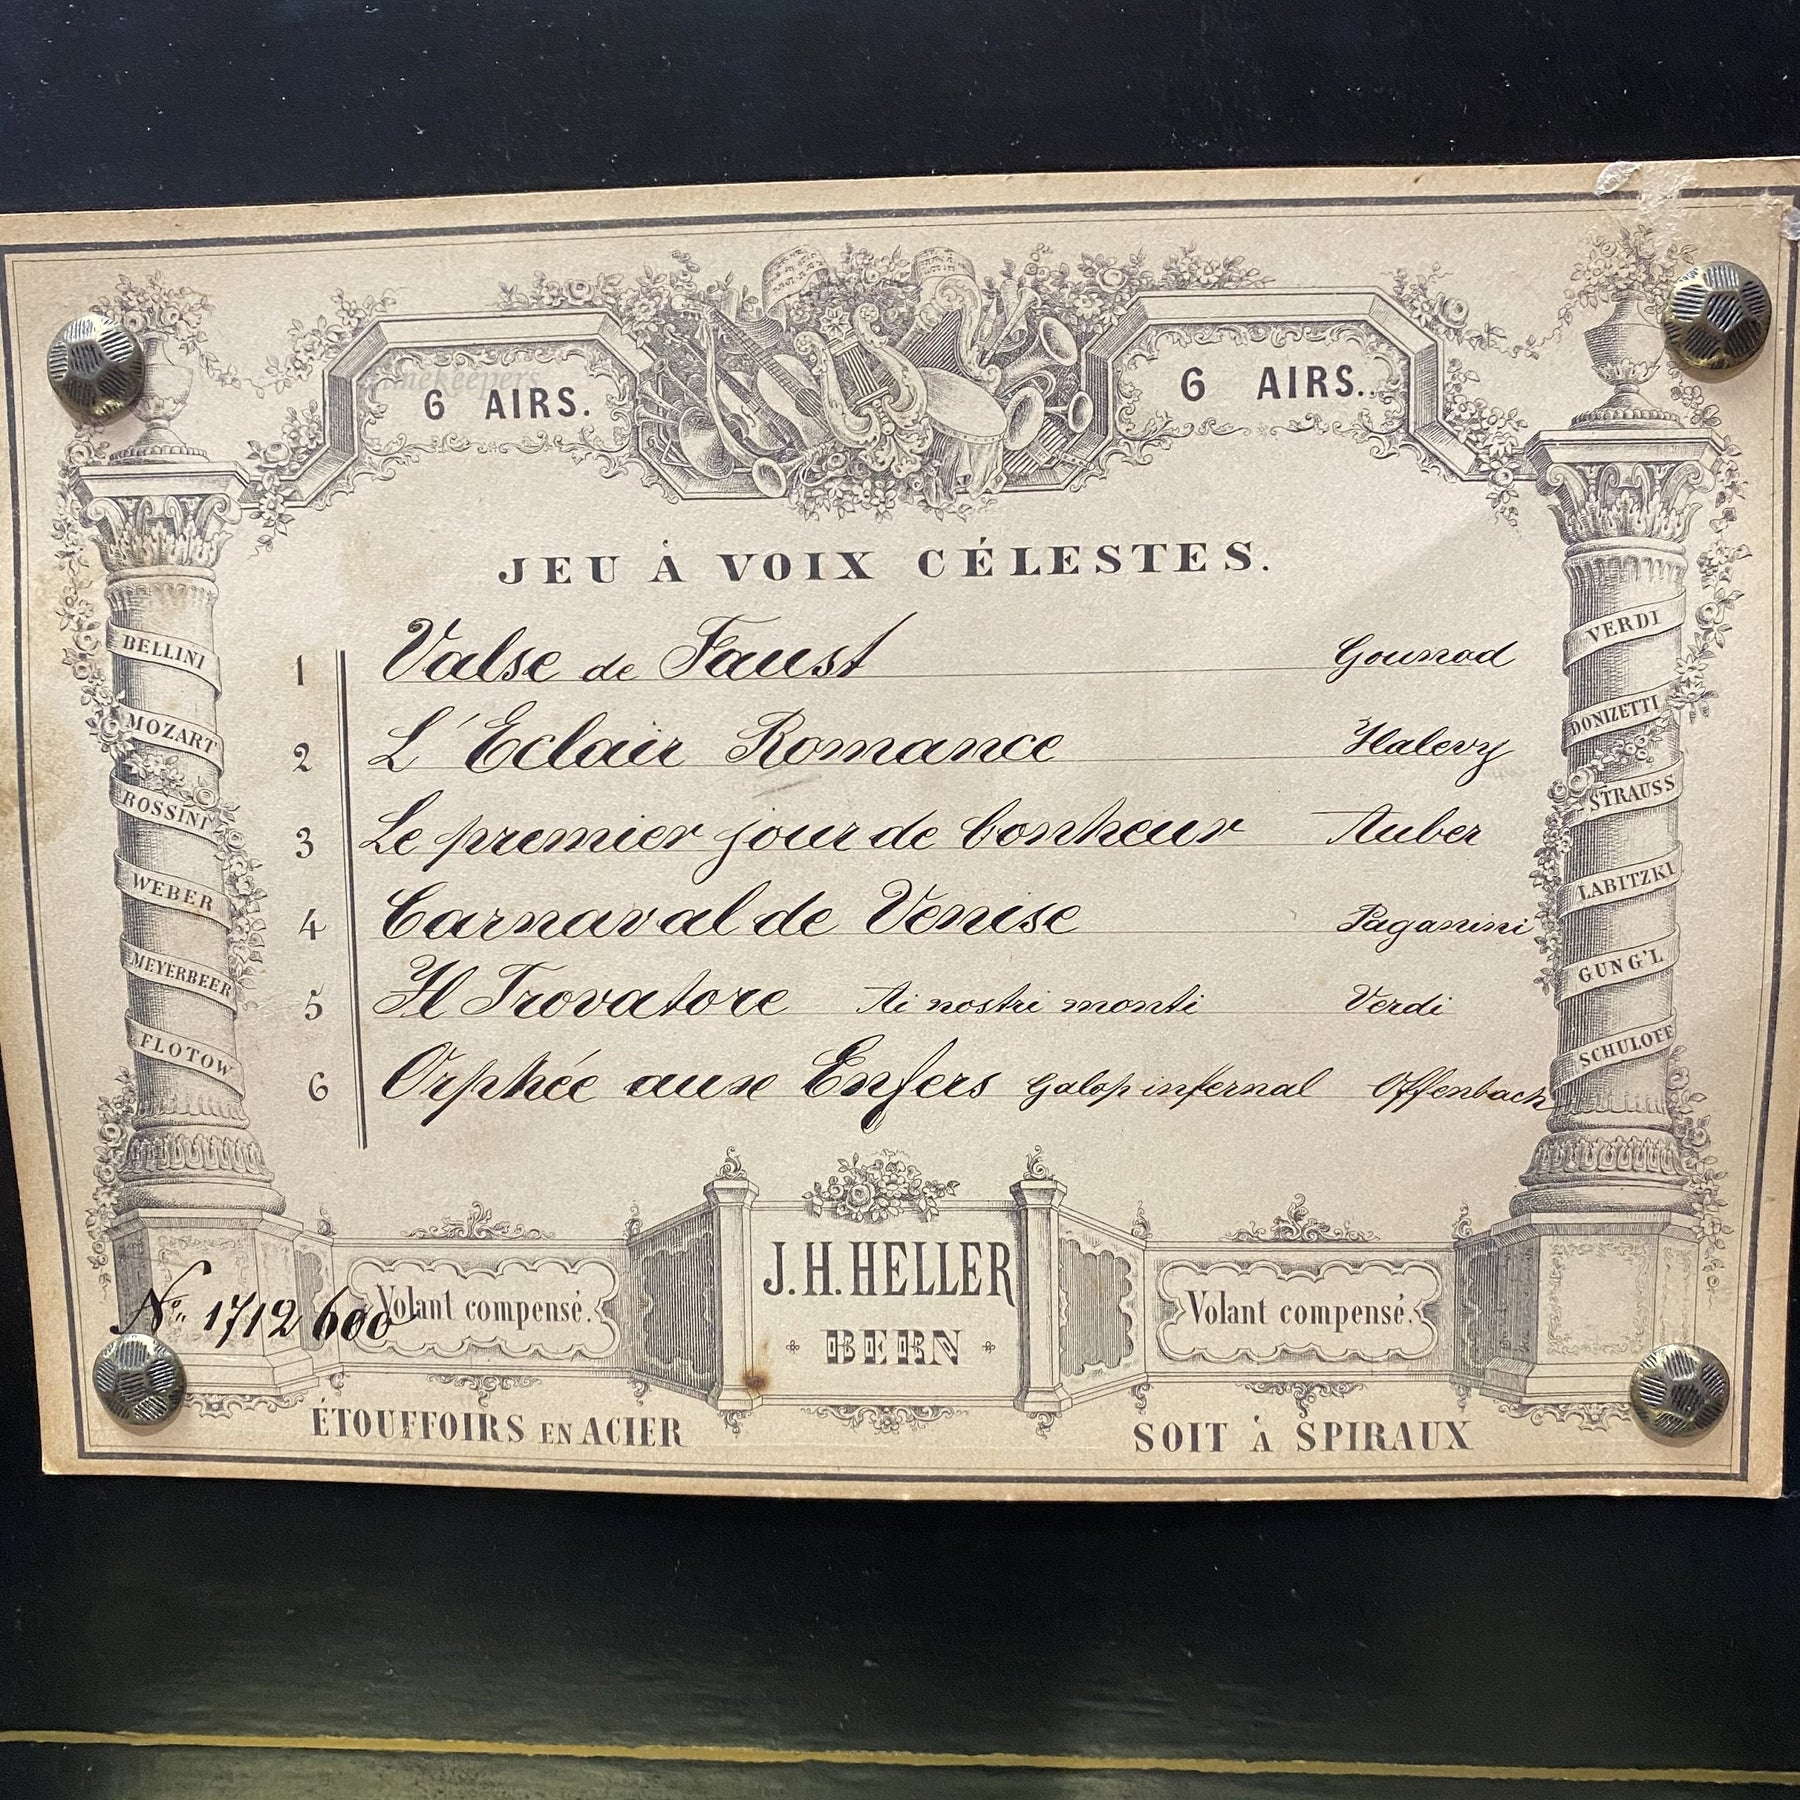 6 AIRS.
6 AIRS.
JEU À VOIX CÉLESTES.
1 Valse de Faust Gounod
2 L'Eclair Romance Halevy
3 Le premier jour de bonheur Auber
4 Carnaval de Venise Paganini
5 Il Trovatore Ai nostri monti Verdi
6 Orphée aux Enfers Galop infernal Offenbach
BELLINI
MOZART
ROSSINI
WEBER
MEYERBEER
FLOTOW
VERDI
DONIZETTI
STRAUSS
LABITZKI
GUNG'L
SCHULOFF
No. 1712 600
Volant compensé.
J. H. HELLER
BERN
Volant compensé.
ÉTOUFFOIRS EN ACIER
SOIT À SPIRAUX